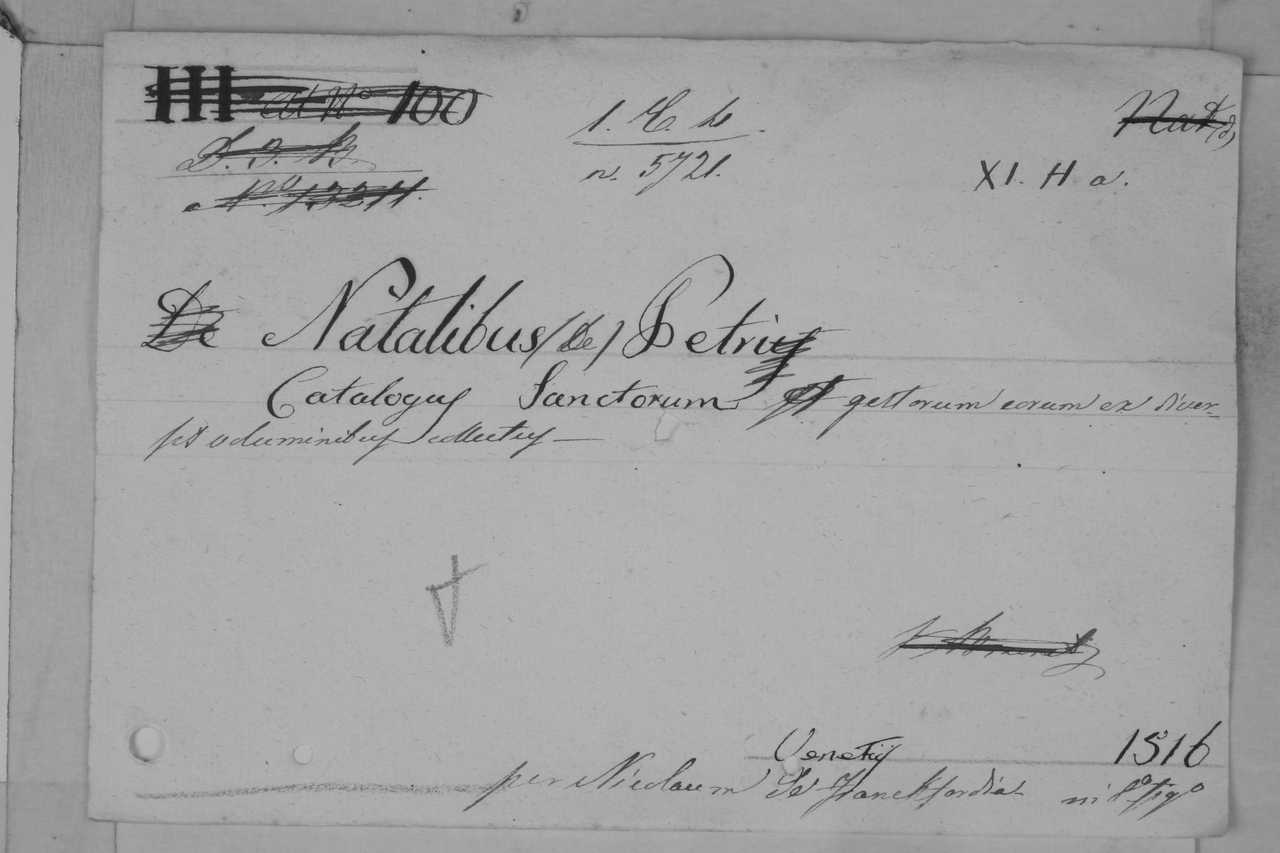 III at No 100
D. D. B.
No 13211.
1. C. b.
n. 5721.
Nat
XI. H a.
De Natalibus (de) Petri
Catalogus Sanctorum et gestorum eorum ex diver-
sis voluminibus collectus —
Venetiis 1516
per Nicolaum De Franckfordia